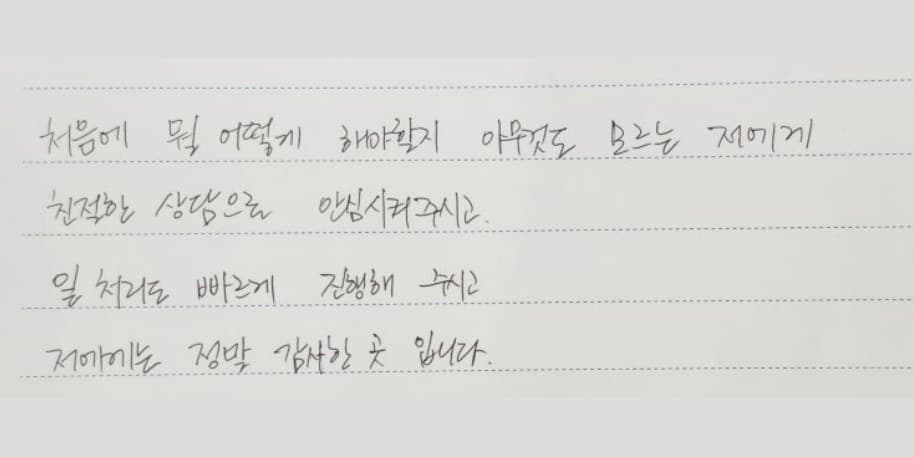 처음에 뭘 어떻게 해야할지 아무것도 모르는 저에게
친절한 상담으로 안심시켜주시고.
일 처리도 빠르게 진행해 주시고
저에게는 정말 감사한 곳 입니다.